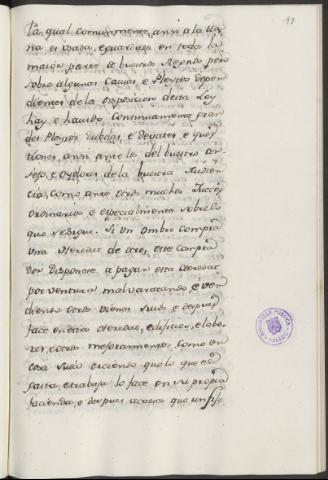 97
La qual comunmente, ansi a la lla-
na es usada, e guardada en toda la
maior parte de buestro Reyno, pero
sobre algunas causas e Pleytos depen-
dientes de la disposicion desta Ley
hay e havido continuamente gran-
des Pleytos, dubdas, e devates, e ques-
tiones, ansi ante los del buestro con-
sejo, e oydores de la buestra Audien-
cia, como ante otros muchos Jueces
ordinarios e especialmente sobre lo
que se sigue. Si un ombre compra
una eredat de otro, este compra-
dor dispone se a pagar esta eredat
por ventura malvaratando e ven-
diendo otros vienes suios e despues
face en dicha eredat, edificios, e labo-
res, e otros mejoramientos, como en
cosa suia diciendo que lo que el
gasta, e trabaja lo face en su propia
facienda, e despues acaece que un fijo
BIBLIOTECA PUBLICA
TOLEDO